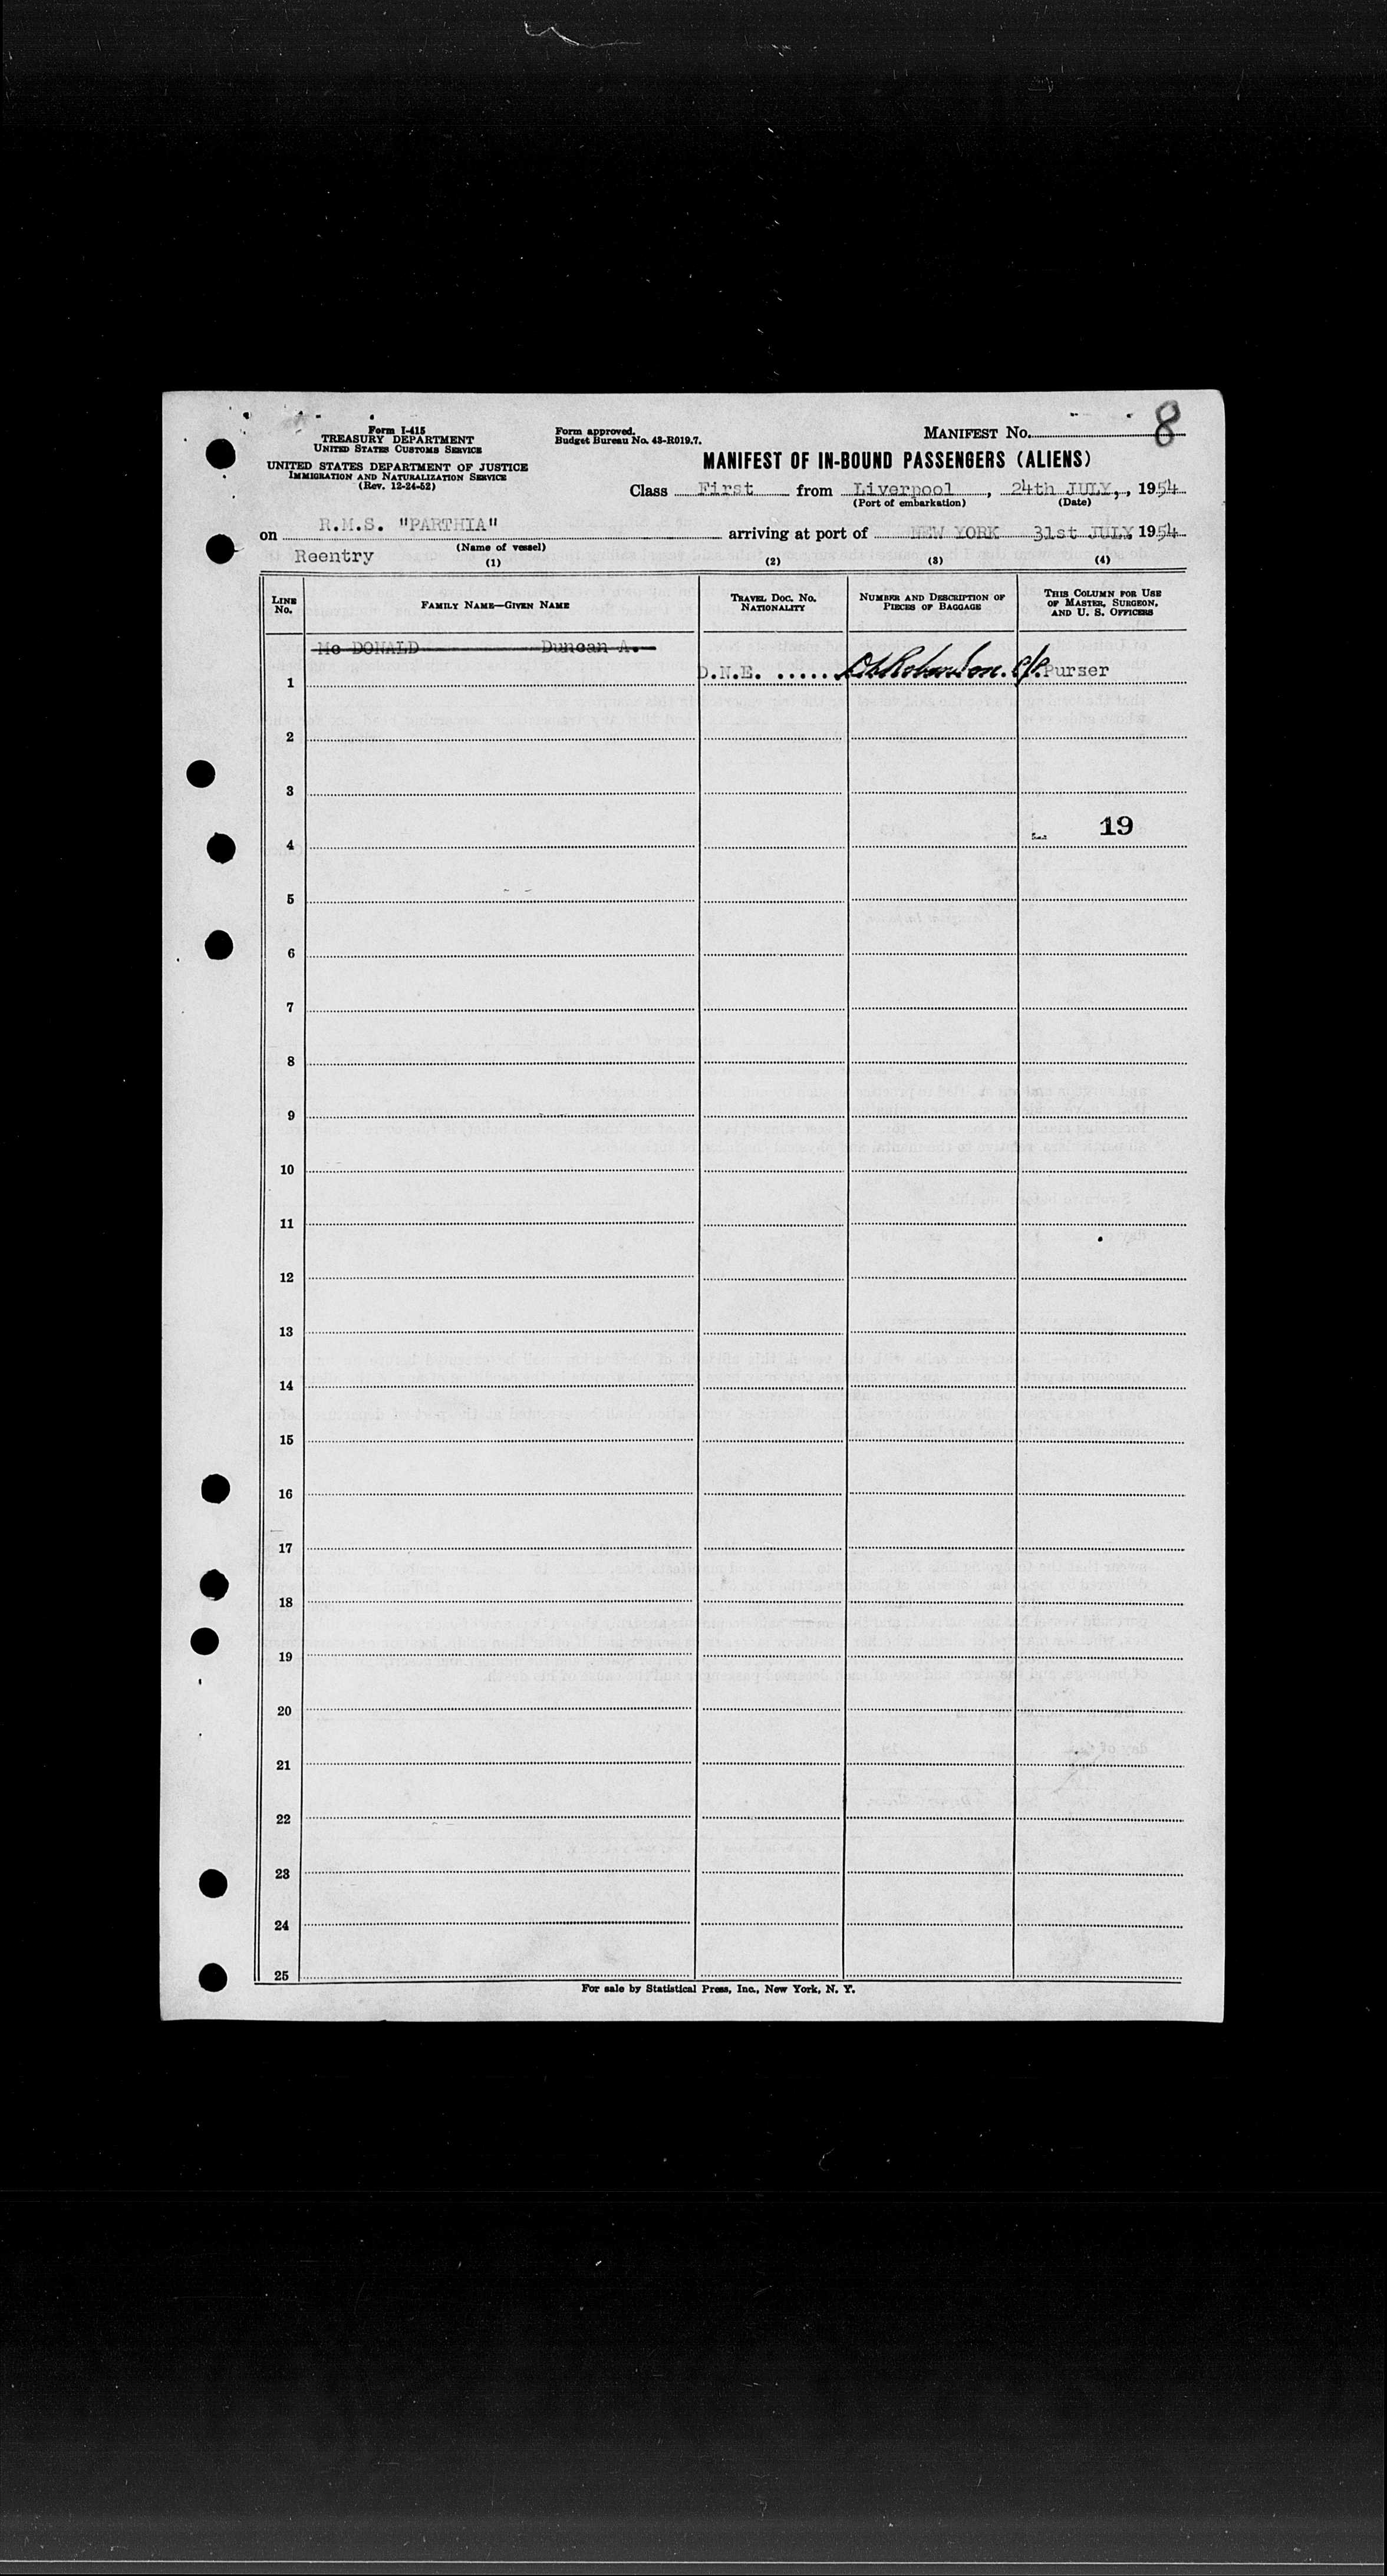 8
Form I-415
TREASURY DEPARTMENT
UNITED STATES CUSTOMS SERVICE
UNITED STATES DEPARTMENT OF JUSTICE
IMMIGRATION AND NATURALIZATION SERVICE
(Rev. 12-24-52)
Form approved.
Budget Bureau No. 43-R019.7.
MANIFEST NO.
MANIFEST OF IN-BOUND PASSENGERS (ALIENS)
Class First from Liverpool, 24th JULY, , 1954
(Port of embarkation) (Date)
on R.M.S. "PARTHIA" arriving at port of NEW YORK 31st JULY 1954
(Name of vessel)
Reentry
(1) (2) (3) (4)
LINE NO. FAMILY NAME—GIVEN NAME TRAVEL DOC. NO. NATIONALITY NUMBER AND DESCRIPTION OF PIECES OF BAGGAGE THIS COLUMN FOR USE OF MASTER, SURGEON, AND U. S. OFFICERS
Mc DONALD Duncan A.
1 D.N.E. ..... Purser
2
3
4 19
5
6
7
8
9
10
11
12
13
14
15
16
17
18
19
20
21
22
23
24
25
For sale by Statistical Press, Inc., New York, N. Y.